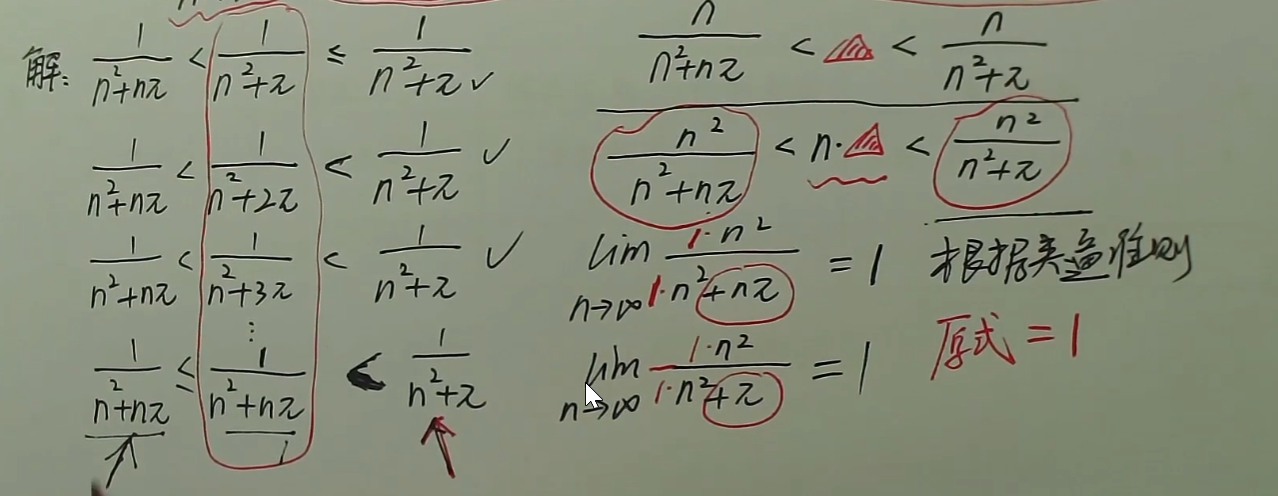 解: 1/(n²+nπ) < 1/(n²+π) ≤ 1/(n²+π) ✓
1/(n²+nπ) < 1/(n²+2π) < 1/(n²+π) ✓
1/(n²+nπ) < 1/(n²+3π) < 1/(n²+π) ✓
⋮
1/(n²+nπ) ≤ 1/(n²+nπ) < 1/(n²+π)
n/(n²+nπ) < △ < n/(n²+π)
n²/(n²+nπ) < n·△ < n²/(n²+π)
lim n→∞ 1·n²/(1·n²+nπ) = 1
lim n→∞ 1·n²/(1·n²+π) = 1
根据夹逼准则
原式 = 1